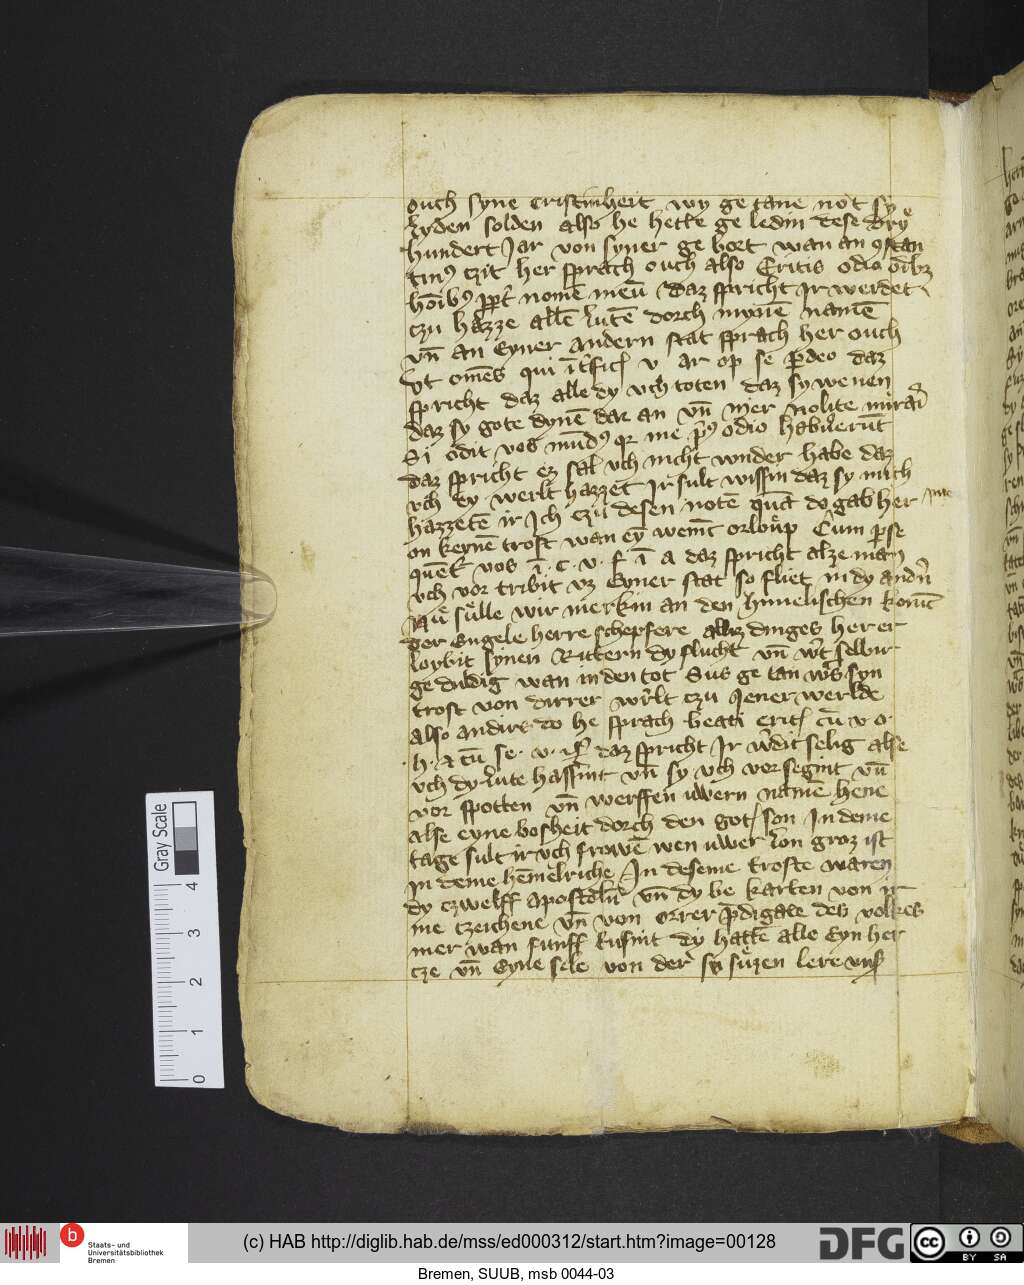 ouch syne cristinheit wy ge tane not sy
lyden solden also he hette ge ledin dese dry
hundert Jar von syner ge boet wan an ꝯstan
tinꝰ czit her sprach ouch also Eritis odio oı̄bꝫ
hōibꝰ ꝓpt̄ nomē meū daz spricht Ir werdet
czu hazze allē lutē dorch mynē namē
vn̄ an eyner andern stat sprach her ouch
Vt om̄es qui īt̄fic v ar op se p̄ deo daz
spricht daz alle dy vch toten daz sy wenen
daz sy gote dynē dar an vn̄ mer Nolite mirari
Si odit vos mūdꝰ qꝛ me p̄ꝰ odio habuerūt
daz spricht ez sal vch nicht wnder habe daz
vch dy werlt hazzet Ir sult wissin daz sy mich
hazzetē ir Ich czu desen notē do gab her
on keynē trost wan ey orloup Cum ꝑse
quēt vos ī . c . v . f ī a daz spricht alze man
vch vor tribit vz Eyner stat so fliet in dy andn̄
Nu sulle wir merkin an den himelischen
der Engele herre schepfere dinges her er
loybit synen Rittern dy flucht vn̄ selbir
ge dudig wan in den tot Sus ge tan syn
trost von dirrer werlt czu Jener werlde
also anders do he sprach beati erit cū v o .
. h . & cū se . v . daz spricht Ir w̄dit selig alse
vch dy lute hassint vn̄ sy vch vor segint vn̄
vor spotten vn̄ werffen uwern namē hene
alse eyne bosheit dorch den got son In deme
tage sult ir vch frowē wen uwer lon groz ist
In deme hēmelriche In deseme troste waren
dy czwelff apostoln vn̄ dy be karten von ir
me czeichene vn̄ von orrer p̄digate des volkes
mer wan funff tusint dy hattē alle Eyn her
cze vn̄ Eyne sele von der suzen lere
Gray Scale
4
3
2
1
0
b
Staats- und
Universitätsbibliothek
Bremen
(c) HAB http://diglib.hab.de/mss/ed000312/start.htm?image=00128
DFG
cc BY SA
Bremen, SUUB, msb 0044-03